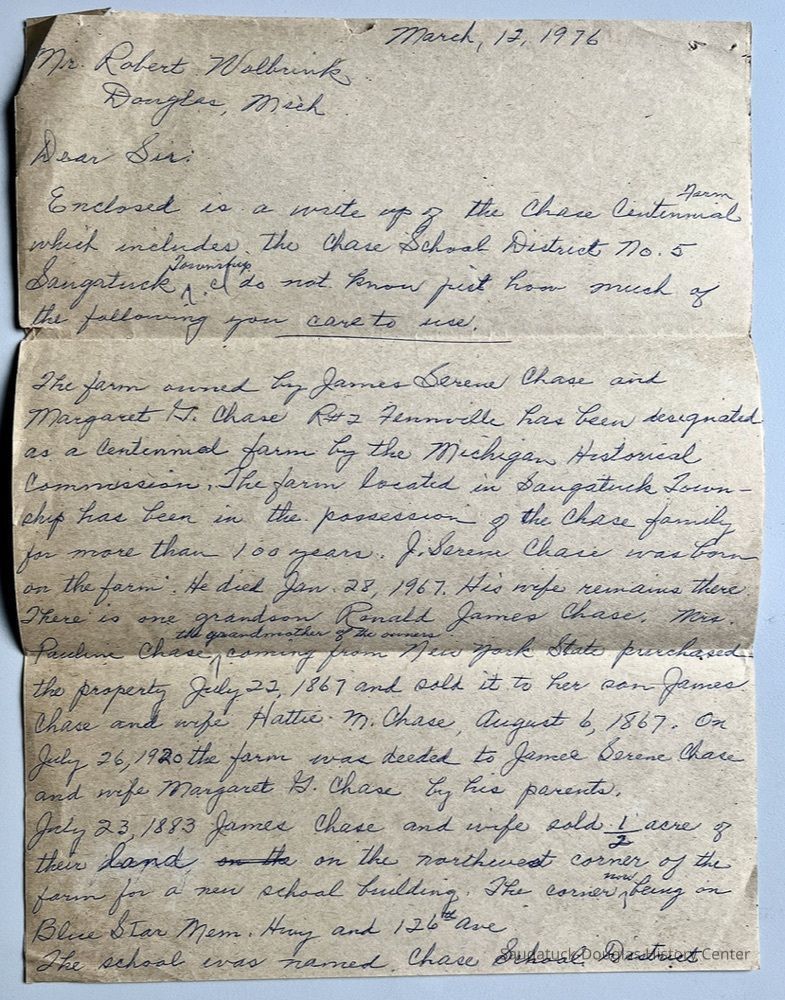 March, 12, 1976
Mr. Robert Wolbrink
Douglas, Mich
Dear Sir:
Enclosed is a write up of the Chase Centennial Farm
which includes the Chase School District No. 5
Saugatuck Township. I do not know just how much of
the following you care to use.
The farm owned by James Serene Chase and
Margaret G. Chase R#2 Fennville has been designated
as a Centennial farm by the Michigan Historical
Commission. The farm located in Saugatuck Town-
ship has been in the possession of the Chase family
for more than 100 years. J. Serene Chase was born
on the farm. He died Jan. 28, 1967. His wife remains there.
There is one grandson Ronald James Chase. Mrs.
Pauline Chase, the grandmother of the owners coming from New York State purchased
the property July 22, 1867 and sold it to her son James
Chase and wife Hattie M. Chase, August 6, 1867. On
July 26, 1920 the farm was deeded to James Serene Chase
and wife Margaret G. Chase by his parents.
July 23, 1883 James Chase and wife sold 1/2 acre of
their land on the on the northwest corner of the
farm for a new school building. The corner now being on
Blue Star Mem. Hwy and 126th Ave
The school was named Chase School District
Saugatuck-Douglas History Center